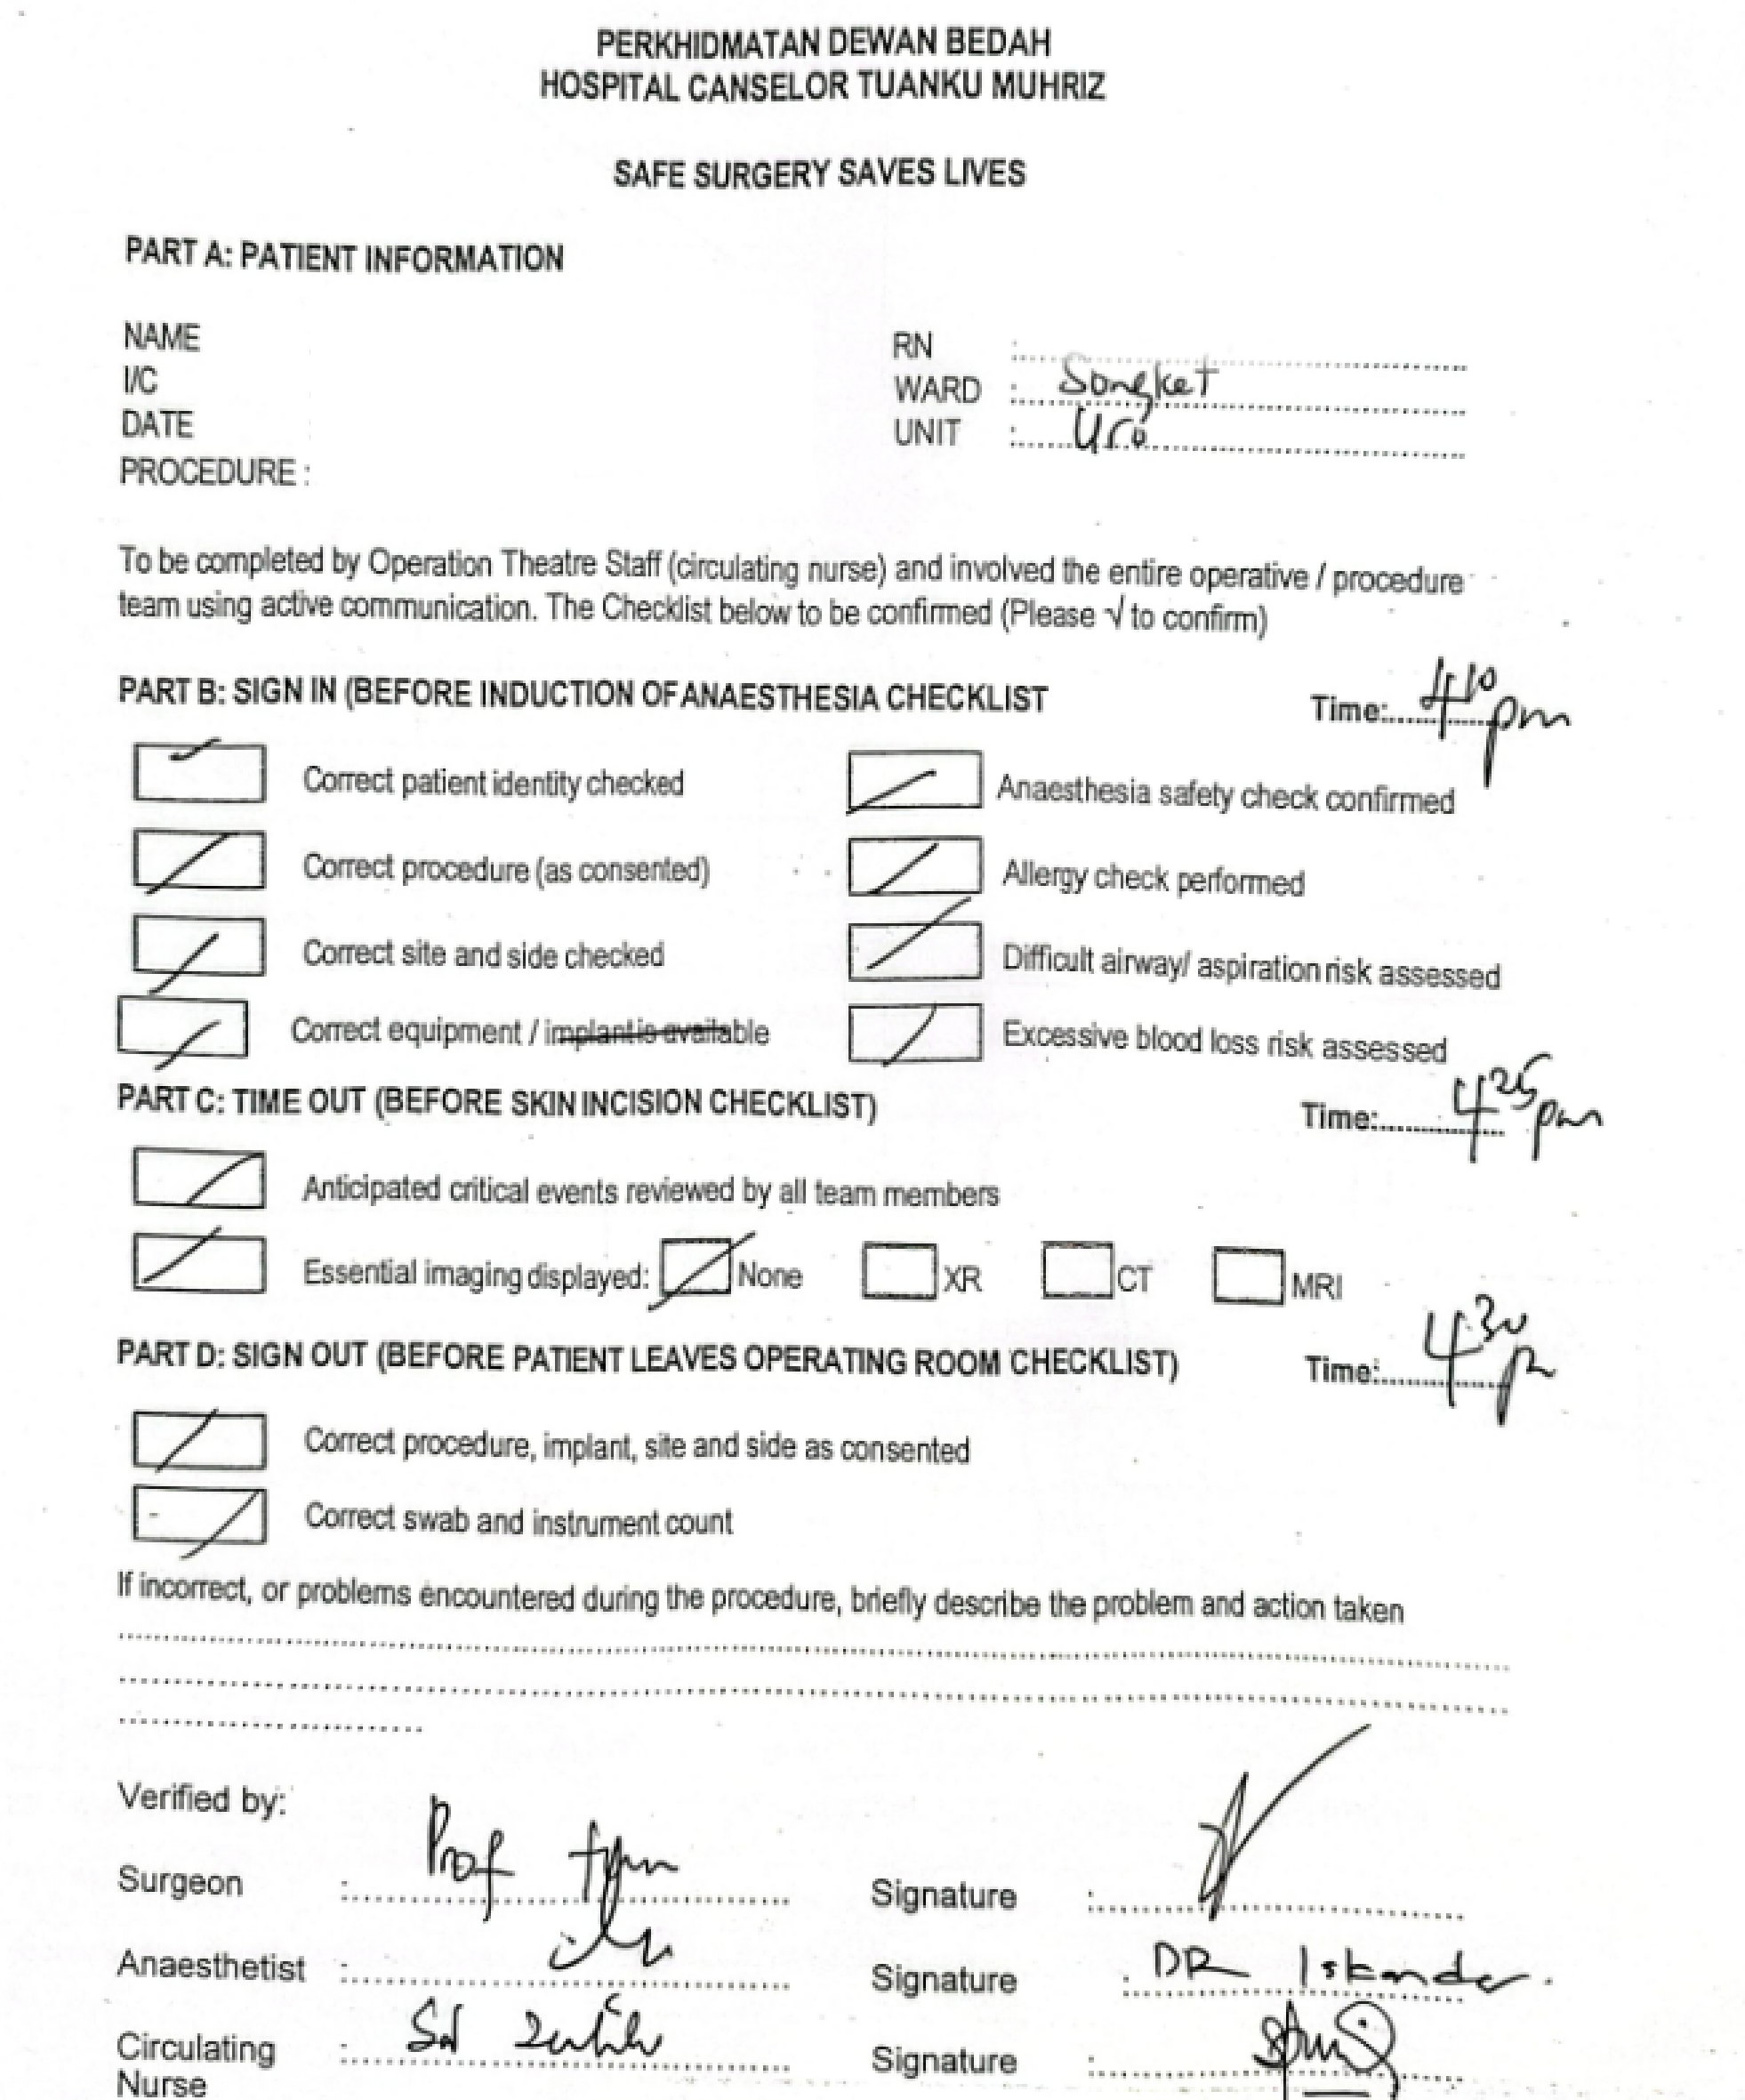 PERKHIDMATAN DEWAN BEDAH
HOSPITAL CANSELOR TUANKU MUHRIZ
SAFE SURGERY SAVES LIVES
PART A: PATIENT INFORMATION
NAME
I/C
DATE
PROCEDURE :
RN :
WARD : Songket
UNIT : Uro
To be completed by Operation Theatre Staff (circulating nurse) and involved the entire operative / procedure
team using active communication. The Checklist below to be confirmed (Please √ to confirm)
PART B: SIGN IN (BEFORE INDUCTION OF ANAESTHESIA CHECKLIST Time: 4 10 pm
Correct patient identity checked Anaesthesia safety check confirmed
Correct procedure (as consented) Allergy check performed
Correct site and side checked Difficult airway/ aspiration risk assessed
Correct equipment / implant is available Excessive blood loss risk assessed
PART C: TIME OUT (BEFORE SKIN INCISION CHECKLIST) Time: 4 25 pm
Anticipated critical events reviewed by all team members
Essential imaging displayed: None XR CT MRI
PART D: SIGN OUT (BEFORE PATIENT LEAVES OPERATING ROOM CHECKLIST) Time: 4 30 p
Correct procedure, implant, site and side as consented
Correct swab and instrument count
If incorrect, or problems encountered during the procedure, briefly describe the problem and action taken
Verified by:
Surgeon : Prof Signature :
Anaesthetist : Signature : DR Iskandar.
Circulating : Signature :
Nurse